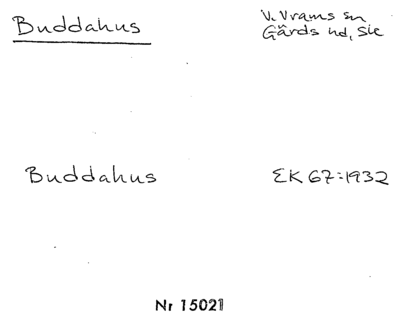 Buddahus
V. Vrams sn
Gärds hd, Sk
Buddahus
EK 67:1932
Nr 15021